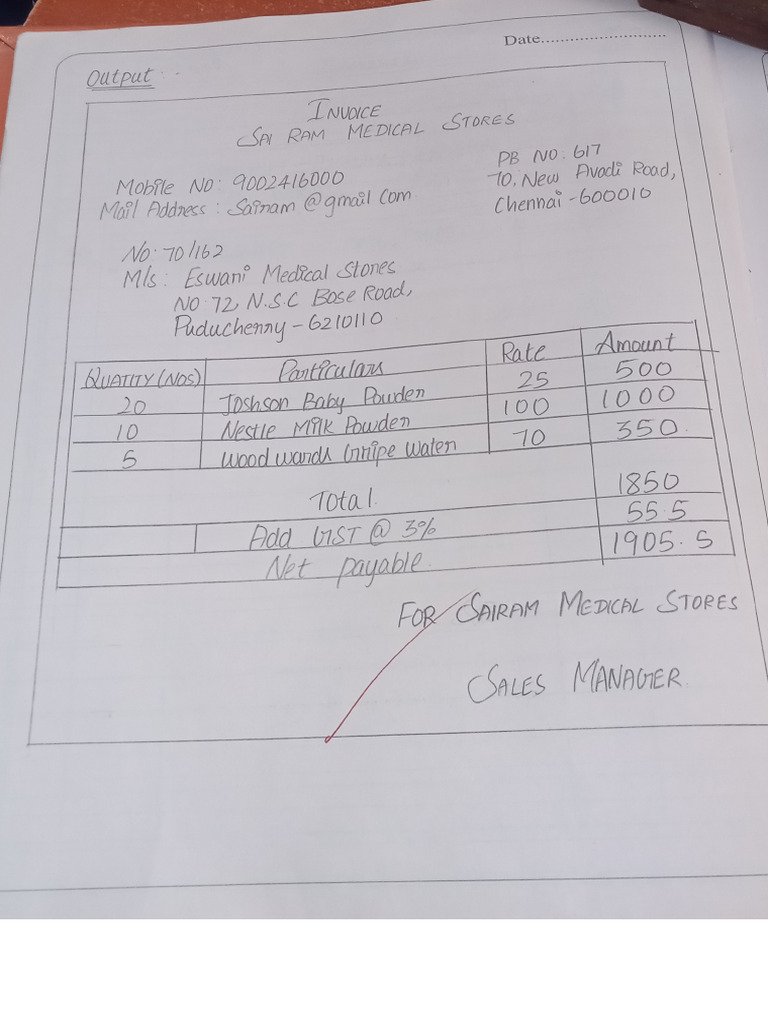 Date..........................
Output :-
INVOICE
SAI RAM MEDICAL STORES
PB NO: 617
Mobile NO: 9002416000
70, New Avadi Road,
Mail Address : Sairam@gmail com
Chennai-600010
No: 70/162
M/s: Eswari Medical Stores
NO 72, N.S.C Bose Road,
Puducherry-6210110
QUATITY (NOS) Particulars Rate Amount
20 Joshson Baby Powder 25 500
10 Nestle Milk Powder 100 1000
5 Woodwards Gripe Water 70 350.
Total 1850
Add GST @ 3% 55.5
Net payable. 1905.5
FOR SAIRAM MEDICAL STORES
SALES MANAGER.